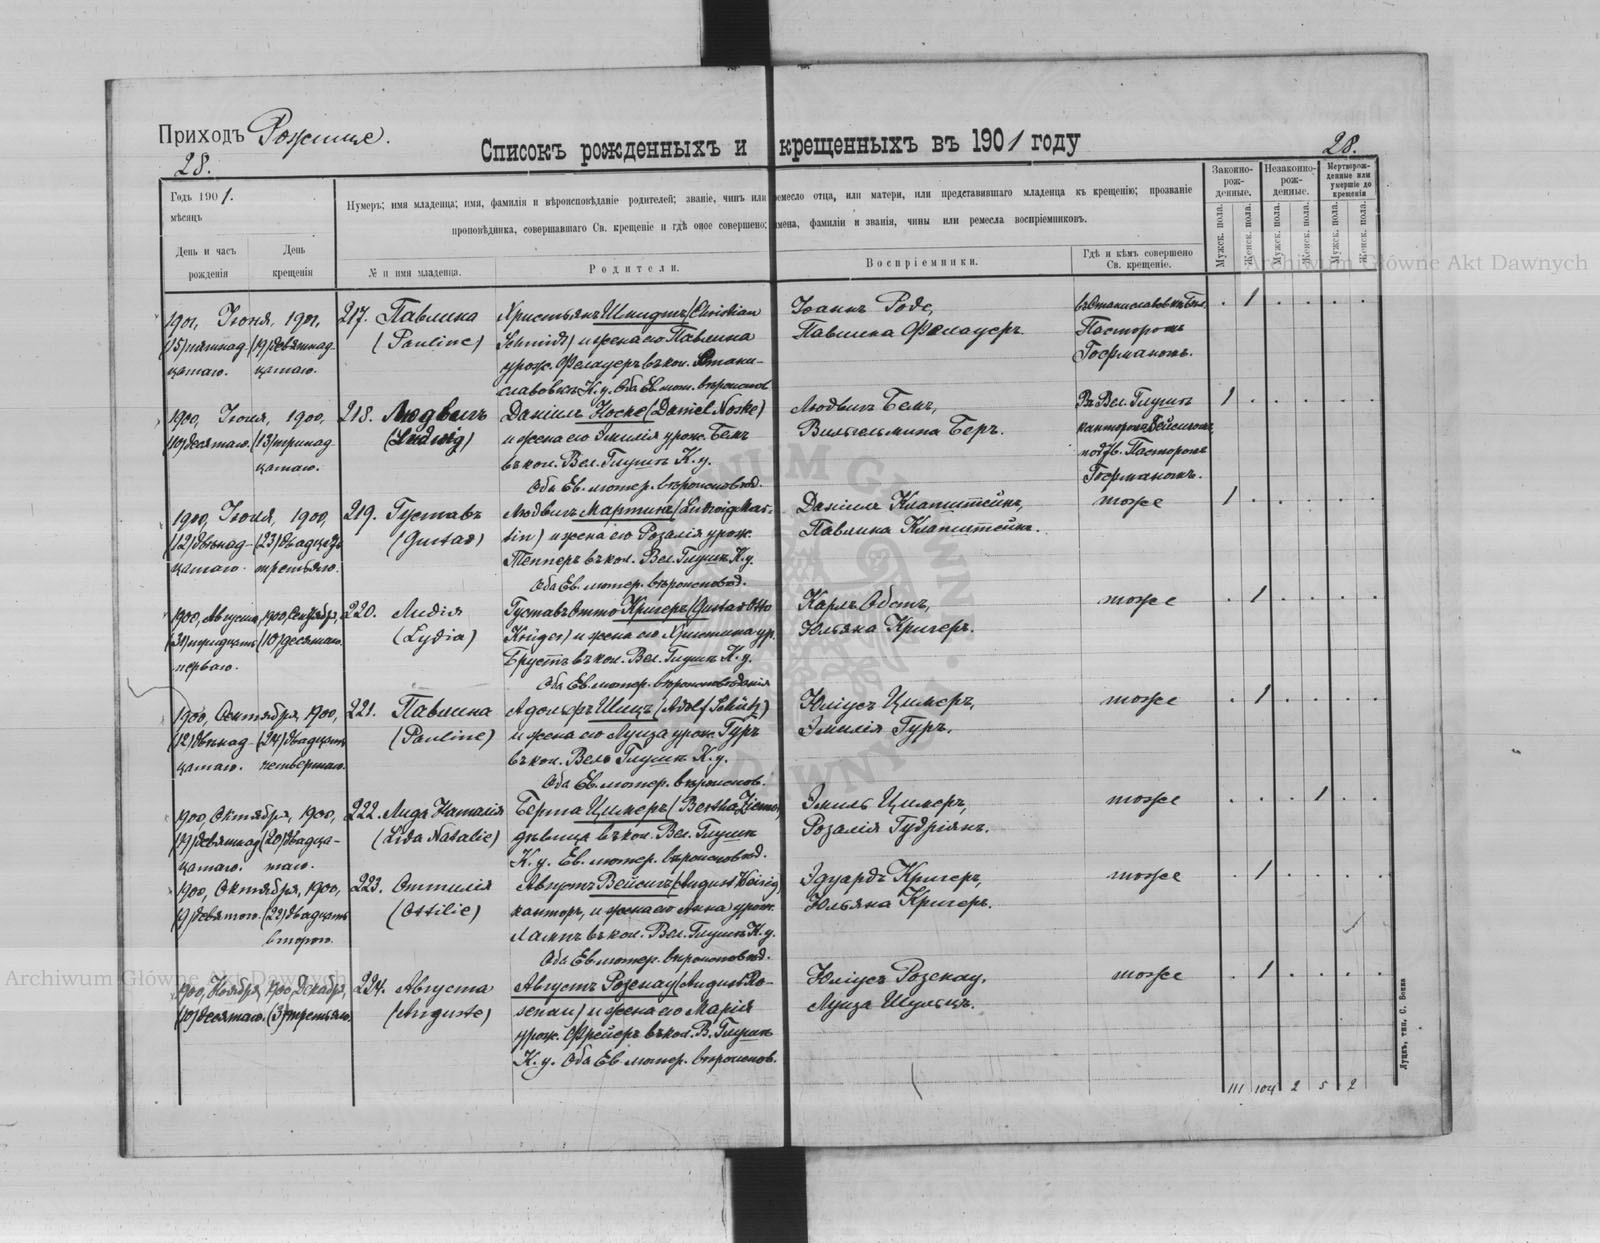 Приходъ Рожище.
28.
Списокъ рожденныхъ и крещенныхъ въ 1901 году
28.
Годъ 1901.
мѣсяцъ
День и часъ рожденія
День крещенія
Нумеръ; имя младенца; имя, фамилія и вѣроисповѣданіе родителей; званіе, чинъ или ремесло отца, или матери, или представившаго младенца къ крещенію; прозваніе
проповѣдника, совершавшаго Св. крещеніе и гдѣ оное совершено; имена, фамиліи и званія, чины или ремесла воспріемниковъ.
№ и имя младенца.
Родители.
Воспріемники.
Гдѣ и кѣмъ совершено Св. крещеніе.
Законно-рож-денные.
Незаконно-рож-денные.
Мертворож-денные или умершіе до крещенія
Мужск. пола.
Женск. пола.
Мужск. пола.
Женск. пола.
Мужск. пола.
Женск. пола.
1901, Іюня, 1901,
(15) пятнад-
цатаго.
(19) девятнад-
цатаго.
217. Павлина
(Pauline)
Христьянъ Шмидтъ (Christian
Schmidt) и жена его Павлина
урож. Фелауеръ въ кол. Стани-
славовка К. у. Оба Ев. лют. вѣроиспов.
Іоаннъ Роде,
Павлина Фелауеръ.
въ Станиславовкѣ
Пасторомъ
Гофманомъ.
1
1900, Іюня, 1900,
(10) десятаго.
(13) тринад-
цатаго.
218. Людвигъ
(Ludwig)
Даніилъ Носке (Daniel Noske)
и жена его Эмилія урож. Бемъ
въ кол. Вел. Глушѣ К. у.
Оба Ев. лютер. вѣроисповѣд.
Людвигъ Бемъ,
Вильгельмина Беръ.
Въ Вел. Глушѣ
канторомъ Вейсигомъ,
подтв. Пасторомъ
Гофманомъ.
1
1900, Іюня, 1900,
(12) двѣнад-
цатаго.
(23) двадцать
третьяго.
219. Густавъ
(Gustav)
Людвигъ Мартинъ (Ludwig Mar-
tin) и жена его Розалія урож.
Тепперъ въ кол. Вел. Глушѣ К. у.
Оба Ев. лютер. вѣроисповѣд.
Даніилъ Клапштейнъ,
Павлина Клапштейнъ.
тоже
1
1900, Августа, 1900, Сентября,
(31) тридцать
перваго.
(10) десятаго.
220. Лидія
(Lydia)
Густавъ Отто Кригеръ (Gustav Otto
Krüger) и жена его Христина ур.
Брустъ въ кол. Вел. Глушѣ К. у.
Оба Ев. лютер. вѣроисповѣданія
Карлъ Обстъ,
Юльяна Кригеръ.
тоже
1
1900, Сентября, 1900,
(12) двѣнад-
цатаго.
(24) двадцать
четвертаго.
221. Павлина
(Pauline)
Адольфъ Шицъ (Adolf Schütz)
и жена его Луиза урож. Гуръ
въ кол. Вел. Глушѣ К. у.
Оба Ев. лютер. вѣроиспов.
Юліусъ Цимеръ,
Эмилія Гуръ.
тоже
1
1900, Октября, 1900,
(19) девятнад-
цатаго.
(20) двадца-
таго.
222. Лида Наталія
(Lida Natalie)
Берта Цимеръ (Bertha Ziemer)
дѣвица въ кол. Вел. Глушѣ
К. у. Ев. лютер. вѣроисповѣд.
Эмиль Цимеръ,
Розалія Гудріянъ.
тоже
1
1900, Октября, 1900,
(9) девятаго.
(22) двадцать
второго.
223. Оттилія
(Ottilie)
Августъ Вейсигъ (August Weisig)
канторъ, и жена его Анна урож.
Лампъ въ кол. Вел. Глушѣ К. у.
Оба Ев. лютер. вѣроисповѣд.
Эдуардъ Кригеръ,
Юльяна Кригеръ.
тоже
1
1900, Ноября, 1900, Декабря,
(10) десятаго.
(3) третьяго.
224. Августа
(Auguste)
Августъ Розенау (August Ro-
senau) и жена его Марія
урож. Фрейеръ въ кол. В. Глушѣ
К. у. Оба Ев. лютер. вѣроиспов.
Юліусъ Розенау,
Луиза Шульцъ.
тоже
1
111 104 2 5 2
Луцкъ, тип. С. Бокка
Archiwum Główne Akt Dawnych
Archiwum Główne Akt Dawnych